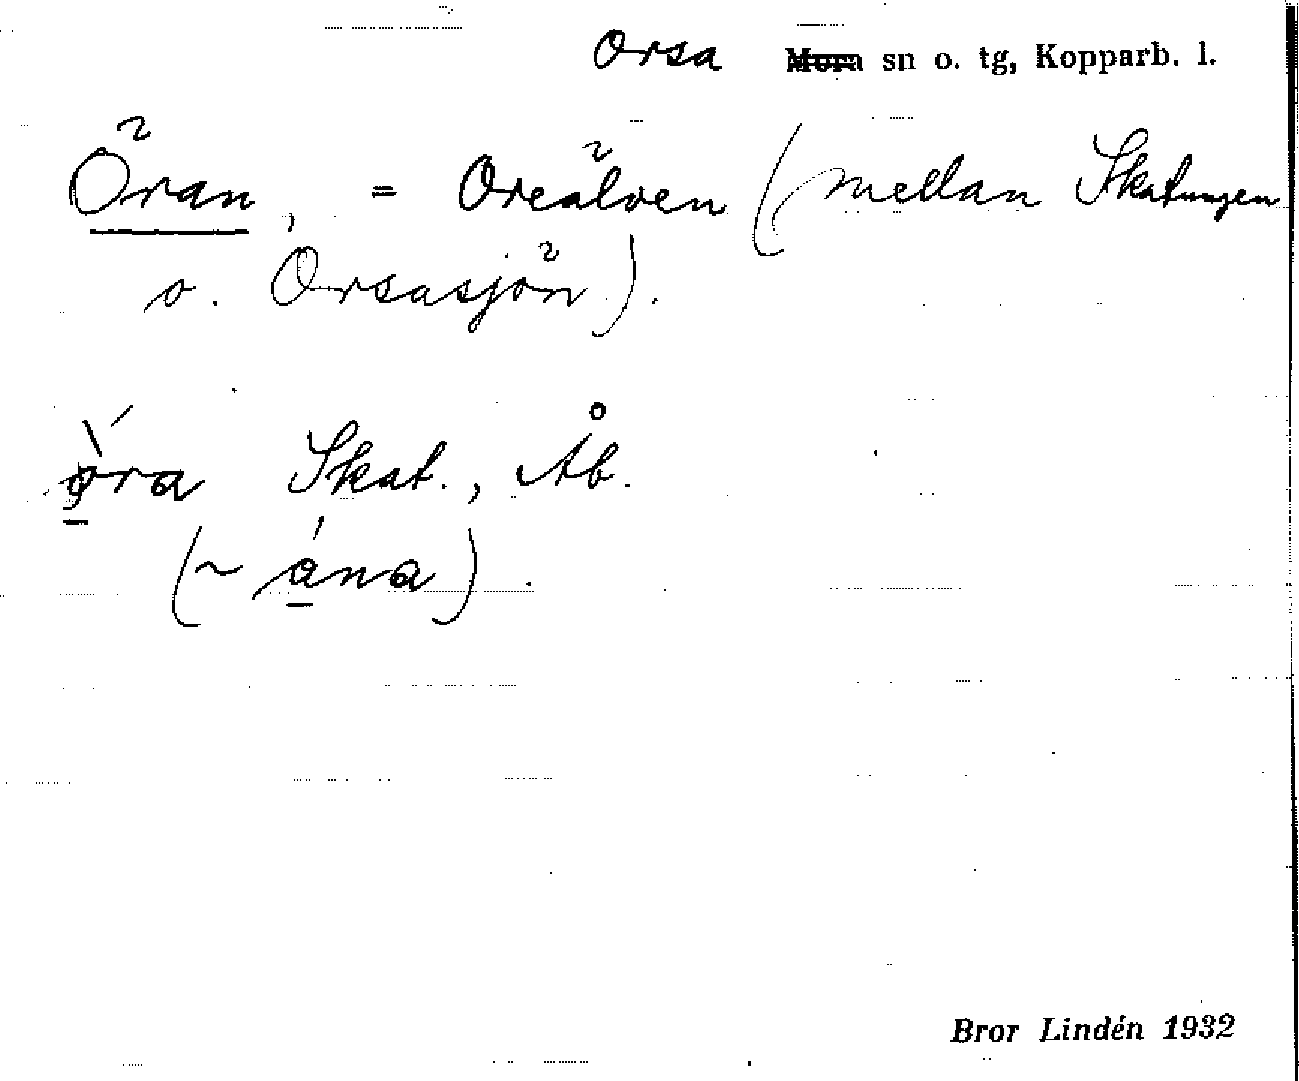 Orsa Mora sn o. tg, Kopparb. l.
Öran, = Oreälven (mellan Skattungen
o. Orsasjön).
ǫ̀́ra Skat., Åb.
(~ ána).
Bror Lindén 1932